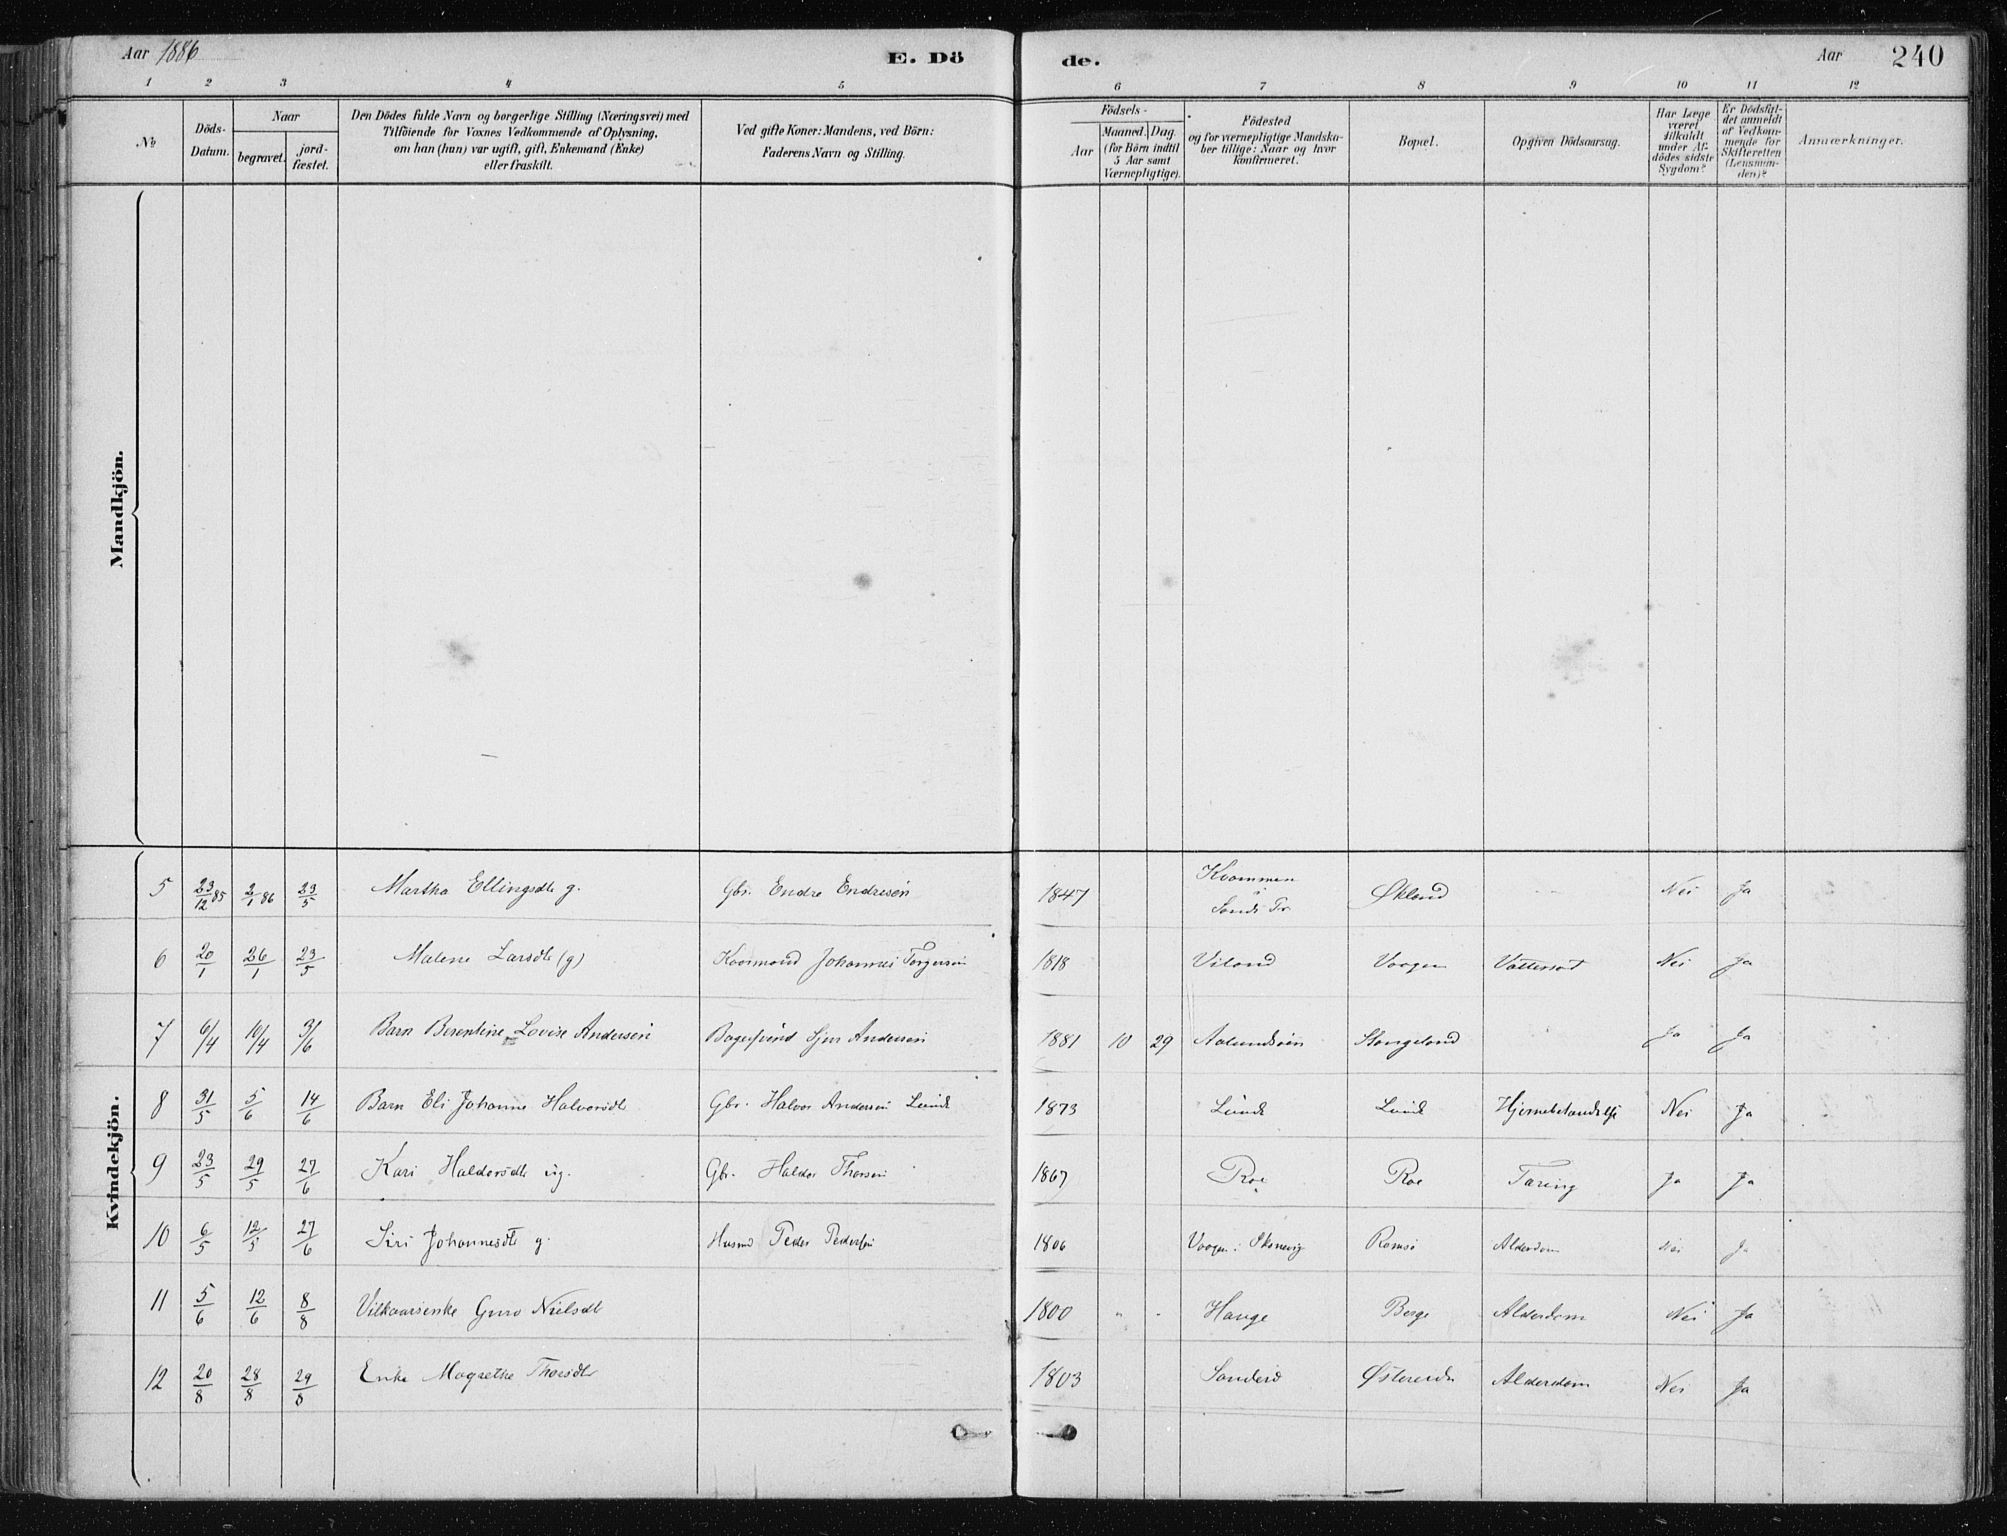 Aar 1886
E. Dö
de.
Aar
240
1 2 3 4 5 6 7 8 9 10 11 12
No
Döds-
Datum.
Naar
begravet.
jord-
fæstet.
Den Dödes fulde Navn og borgerlige Stilling (Næringsvei) med
Tilföiende for Voxnes Vedkommende af Oplysning,
om han (hun) var ugift, gift, Enkemand (Enke)
eller fraskilt.
Ved gifte Koner: Mandens, ved Börn:
Faderens Navn og Stilling.
Födsels-
Aar
Maaned. Dag.
(for Börn indtil
5 Aar samt
Værnepligtige).
Födested
og for værnepligtige Mandska-
ber tillige: Naar og hvor
konfirmeret.
Bopæl.
Opgiven Dödsaarsag.
Har Læge
været
tilkaldt
under Af-
dödes sidste
Sygdom?
Er Dödsfal-
det anmeldt
af Vedkom-
mende for
Skifteretten
(Lensman-
den)?
Anmærkninger.
Mandkjön.
Kvindekjön.
5 23/12 85 2/1 86 23/5 Martha Ellingsdt g. Gbr. Endre Endresen 1847 Kvammen i Sønd. Økland -- Nei Ja
6 20/1 26/1 23/5 Malene Larsdt (g) Johannes Torgersen 1818 Viland Vaagen Vattersot Nei Ja
7 6/4 10/4 3/6 Barn Berentine Lovise Andersen Sjur Andersen 1881 10 29 Stangeland Ja Ja
8 31/5 5/6 14/6 Barn Eli Johanne Halvorsdt Gbr. Halvor Andersen Lunde 1873 Lunde Lunde Hjernebetændelse Nei Ja
9 23/5 29/5 27/6 Kari Haldorsdt ug. Gbr. Haldor Thorsen 1867 Roe Roe Tæring Ja Ja
10 6/5 12/5 27/6 Siri Johannesdt g. Husmd Peder Pedersen 1806 Vaagen i Skonevig Romsø Alderdom Nei Ja
11 5/6 12/6 8/8 Vilkaarsenke Guro Nielsdt 1800 " - Hauge Berge Alderdom Nei Ja
12 20/8 28/8 29/8 Enke Magrethe Thorsdt 1803 Sanderø Østereide Alderdom Nei Ja